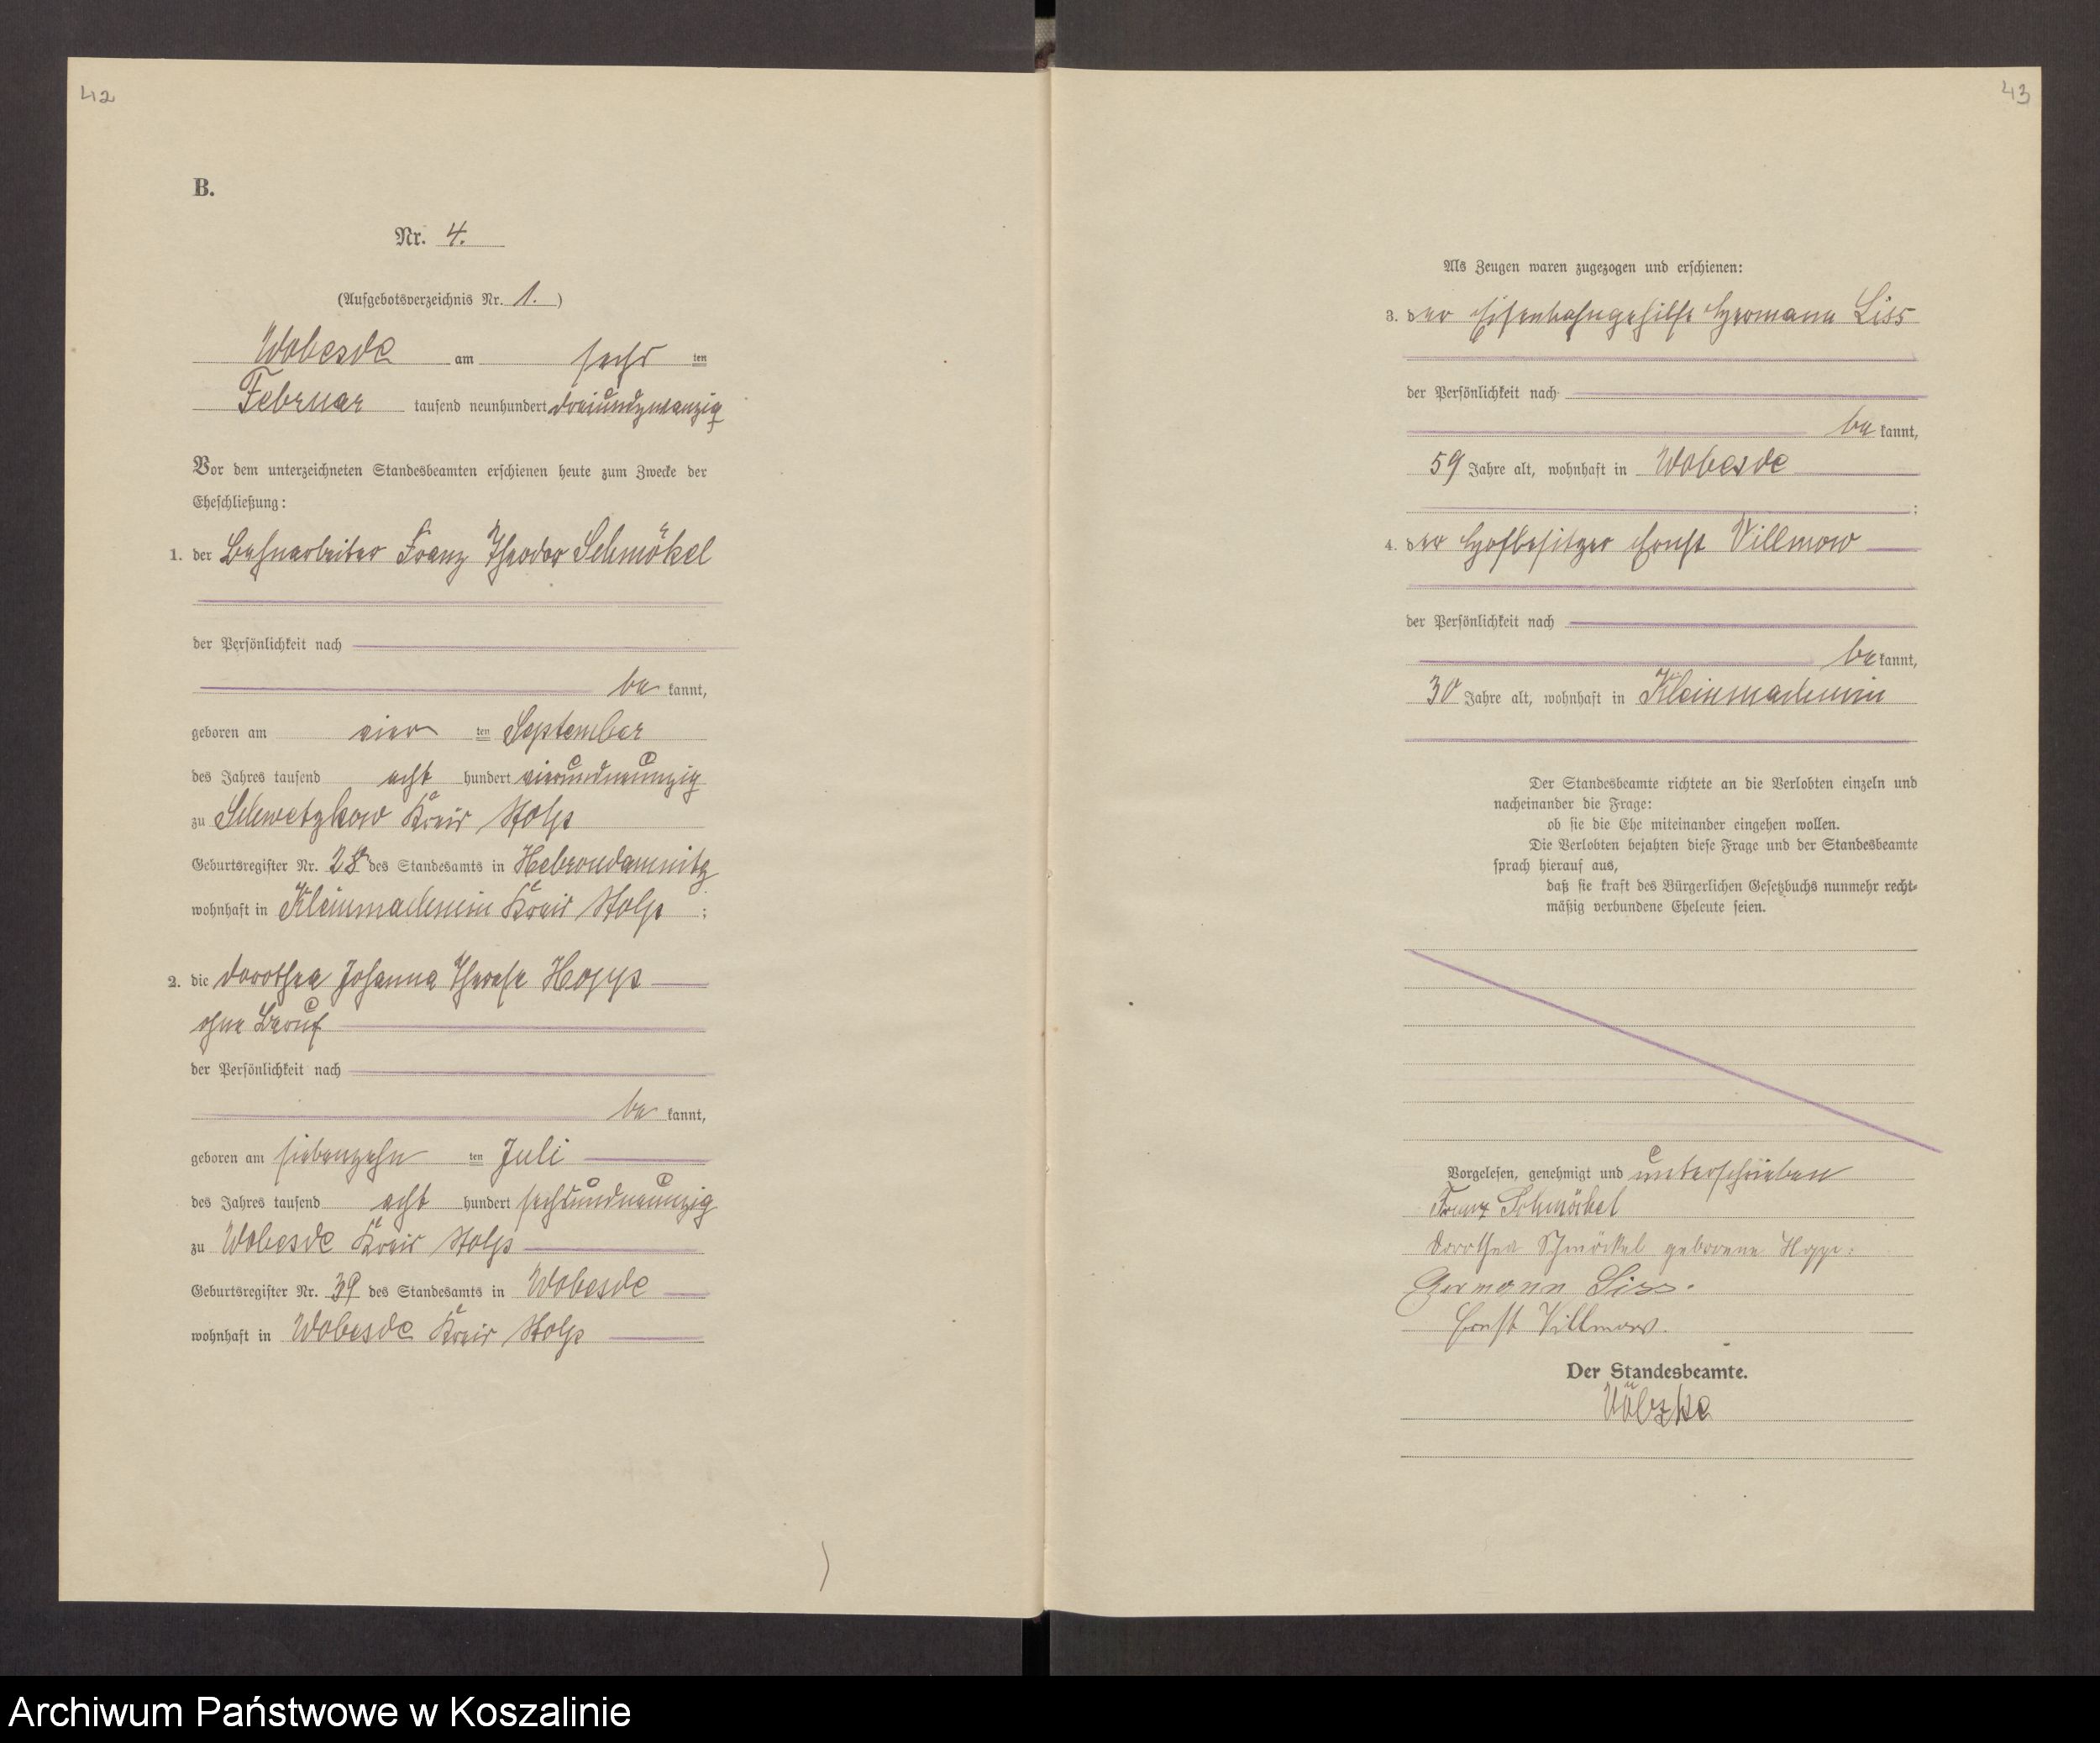 42
B.
Nr. 4.
(Aufgebotsverzeichnis Nr. 1. )
Wobesde am sechs ten
Februar tausend neunhundert dreiundzwanzig
Vor dem unterzeichneten Standesbeamten erschienen heute zum Zwecke der
Eheschließung:
1. der Bahnarbeiter Franz Theodor Schmökel
der Persönlichkeit nach
be kannt,
geboren am vier ten September
des Jahres tausend acht hundert vierundneunzig
zu Schwetzkow Kreis Stolp
Geburtsregister Nr. 28 des Standesamts in Hebrondamnitz
wohnhaft in Kleinmachmin Kreis Stolp ;
2. die Dorothea Johanna Therese Hopp
ohne Beruf
der Persönlichkeit nach
be kannt,
geboren am siebenzehn ten Juli
des Jahres tausend acht hundert sechsundneunzig
zu Wobesde Kreis Stolp
Geburtsregister Nr. 39 des Standesamts in Wobesde
wohnhaft in Wobesde Kreis Stolp
43
Als Zeugen waren zugezogen und erschienen:
3. der Eisenbahngehilfe Hermann Liss
der Persönlichkeit nach
be kannt,
59 Jahre alt, wohnhaft in Wobesde
;
4. der Hofbesitzer Ernst Villmow
der Persönlichkeit nach
be kannt,
30 Jahre alt, wohnhaft in Kleinmachmin
Der Standesbeamte richtete an die Verlobten einzeln und
nacheinander die Frage:
ob sie die Ehe miteinander eingehen wollen.
Die Verlobten bejahten diese Frage und der Standesbeamte
sprach hierauf aus,
daß sie kraft des Bürgerlichen Gesetzbuchs nunmehr recht-
mäßig verbundene Eheleute seien.
Vorgelesen, genehmigt und unterschrieben
Franz Schmöckel
Dorothea Schmöckel geborene Hopp.
Hermann Liss.
Ernst Villmow.
Der Standesbeamte.
Archiwum Państwowe w Koszalinie